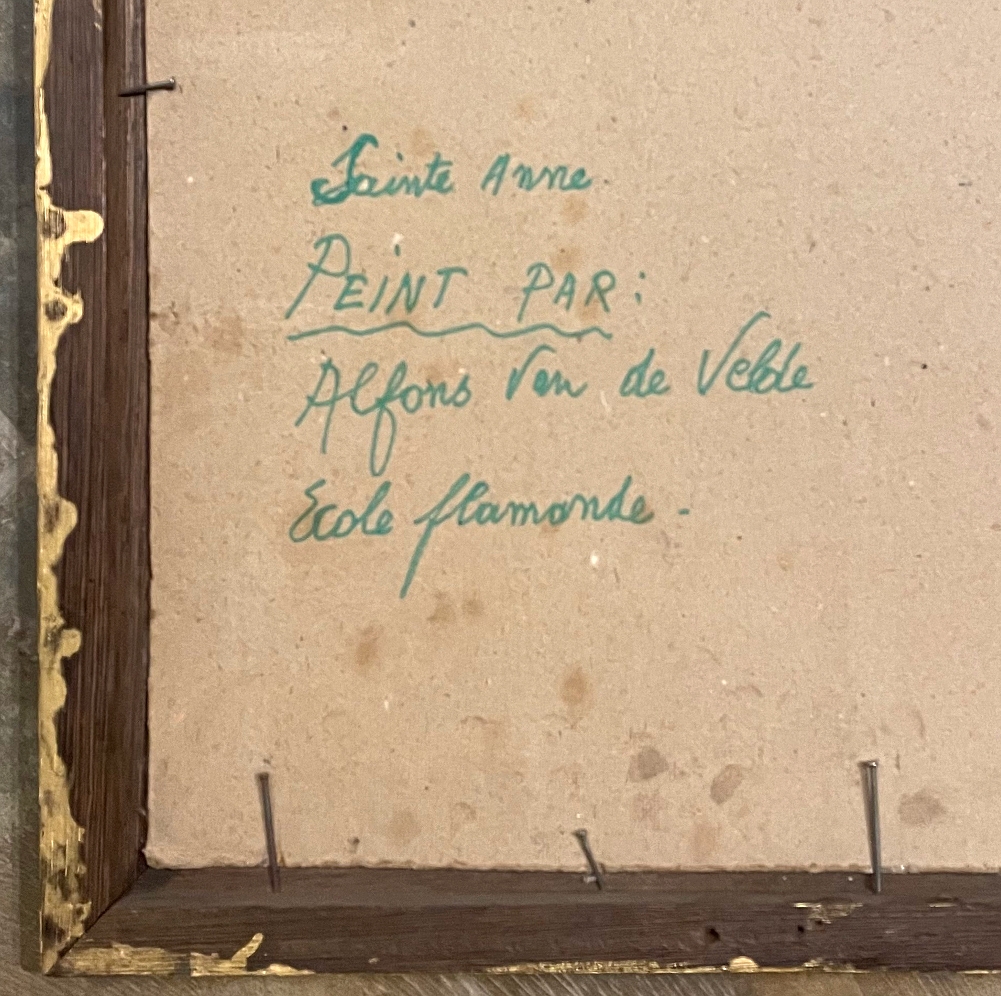 Sainte Anne.
PEINT PAR:
Alfons Van de Velde
Ecole flamande.